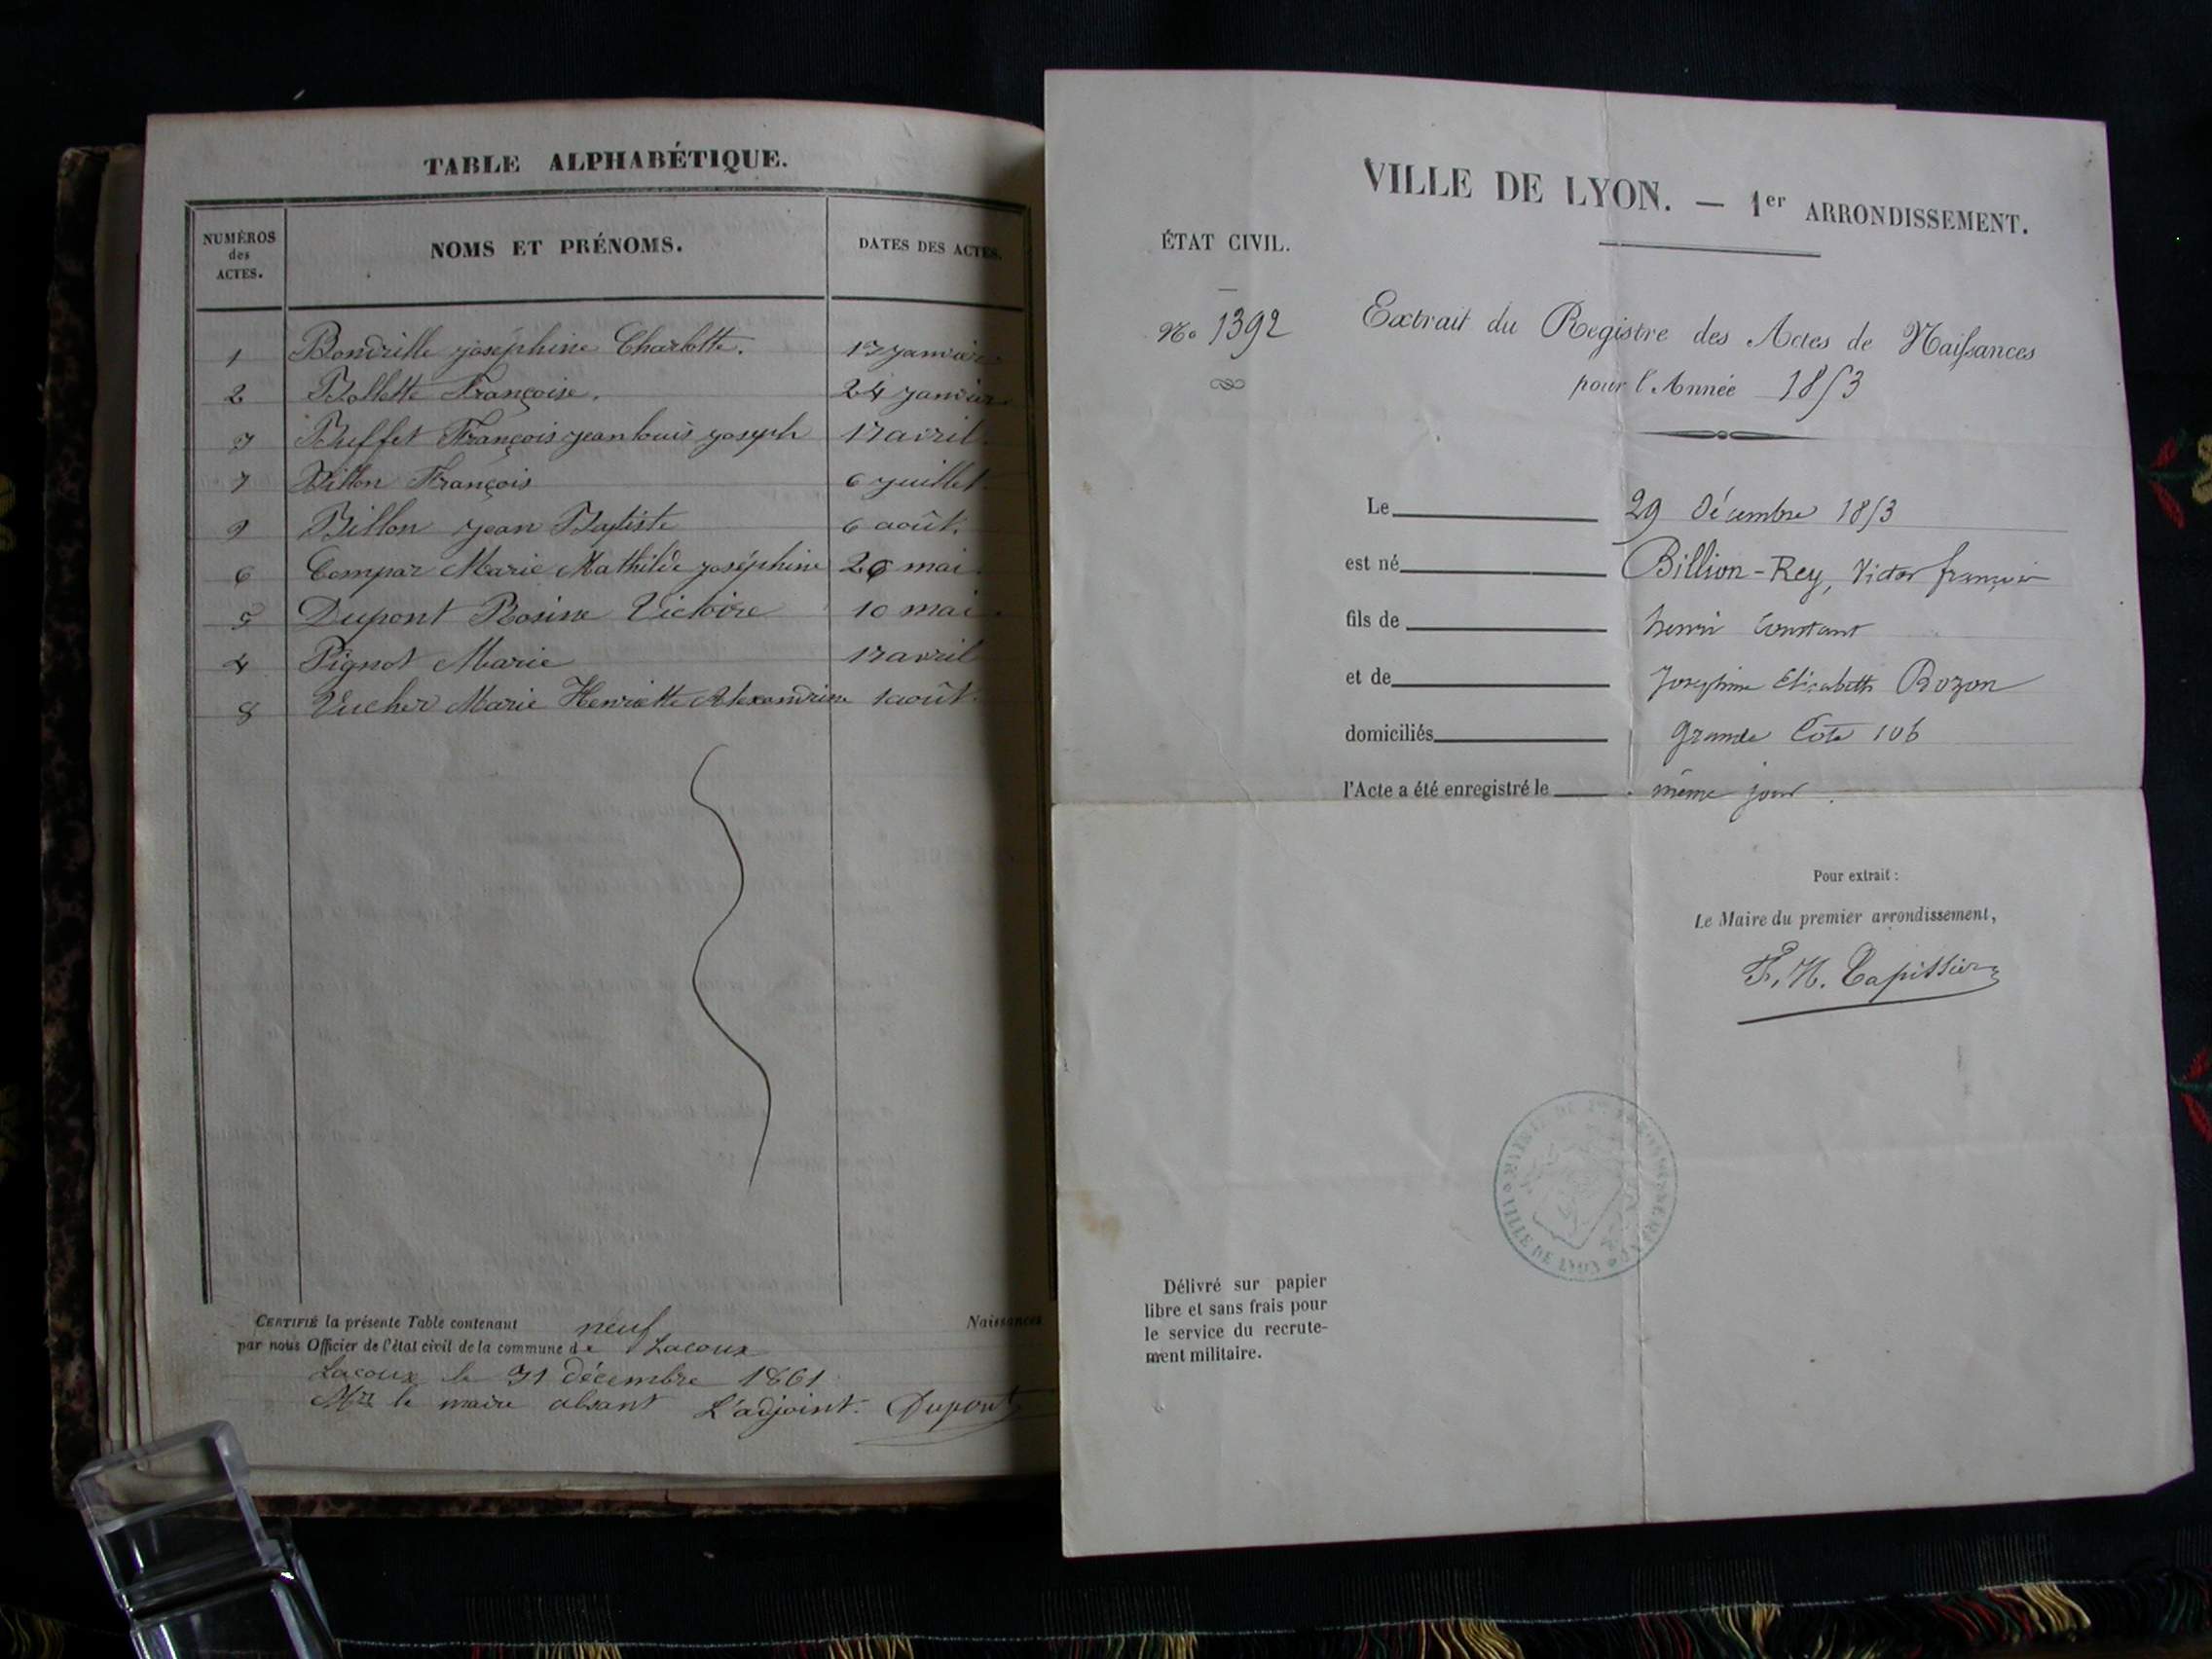 TABLE ALPHABÉTIQUE.
NUMÉROS
des
ACTES.
NOMS ET PRÉNOMS.
DATES DES ACTES.
1 Bondrille joséphine Charlotte. 17 janvier
2 Bollette Françoise. 24 janvier
3 Buffet François jean louis joseph 17 avril.
7 Billon François 6 juillet.
9 Billon jean Baptiste 6 août.
6 Compar Marie Mathilde joséphine 26 mai.
5 Dupont Rosine Victoire 10 mai
4 Pignot Marie 17 avril
8 Vucher Marie Henriette Alexandrine 1 août.
CERTIFIÉ la présente Table contenant neuf Naissances
par nous Officier de l'état civil de la commune de Lacoux
Lacoux le 31 décembre 1861
Mr le maire absant L'adjoint. Dupont
VILLE DE LYON. — 1er ARRONDISSEMENT.
ÉTAT CIVIL.
No 1392
Extrait du Registre des Actes de Naissances
pour l'Année 1853
Le 29 Décembre 1853
est né Billion-Rey, Victor françois
fils de henri Constant
et de Joséphine Elisabeth Bozon
domiciliés grande Côte 106
l'Acte a été enregistré le même jour.
Pour extrait :
Le Maire du premier arrondissement,
F. H. Tapissier
MAIRIE DU 1er ARRONDISSEMENT
VILLE DE LYON
Délivré sur papier
libre et sans frais pour
le service du recrute-
ment militaire.